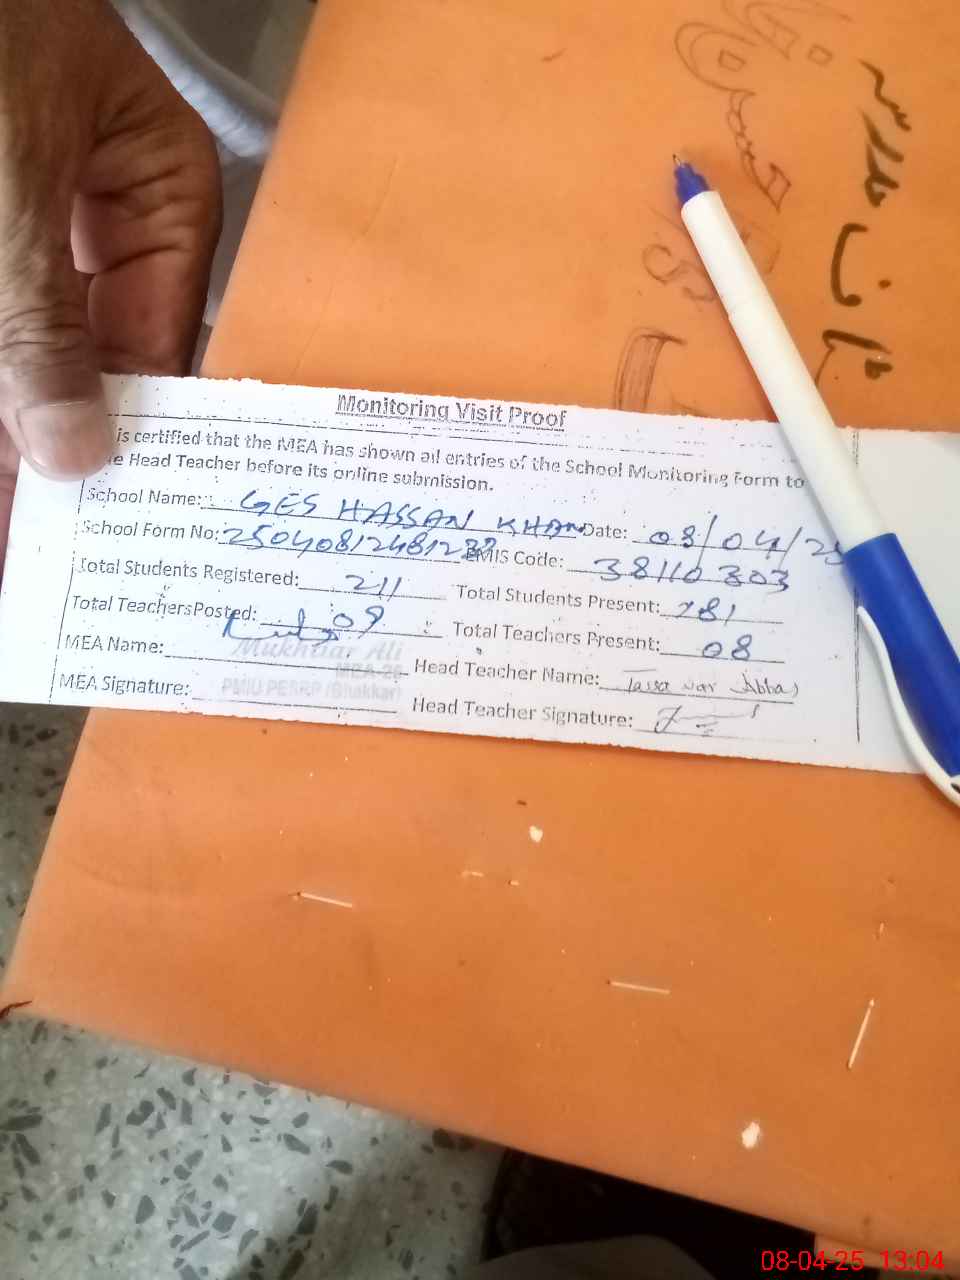 Monitoring Visit Proof
is certified that the MEA has shown all entries of the School Monitoring Form to
Head Teacher before its online submission.
School Name: GES HASSAN KHAN Date: 08/04/25
School Form No: EMIS Code: 38110303
Total Students Registered: 211 Total Students Present: 181
Total TeachersPosted: 09 Total Teachers Present: 08
MEA Name: Mukhtiar Ali Head Teacher Name: Abbas
MEA-26
MEA Signature: PMIU PESRP (Bhakkar) Head Teacher Signature:
08-04-25 13:04